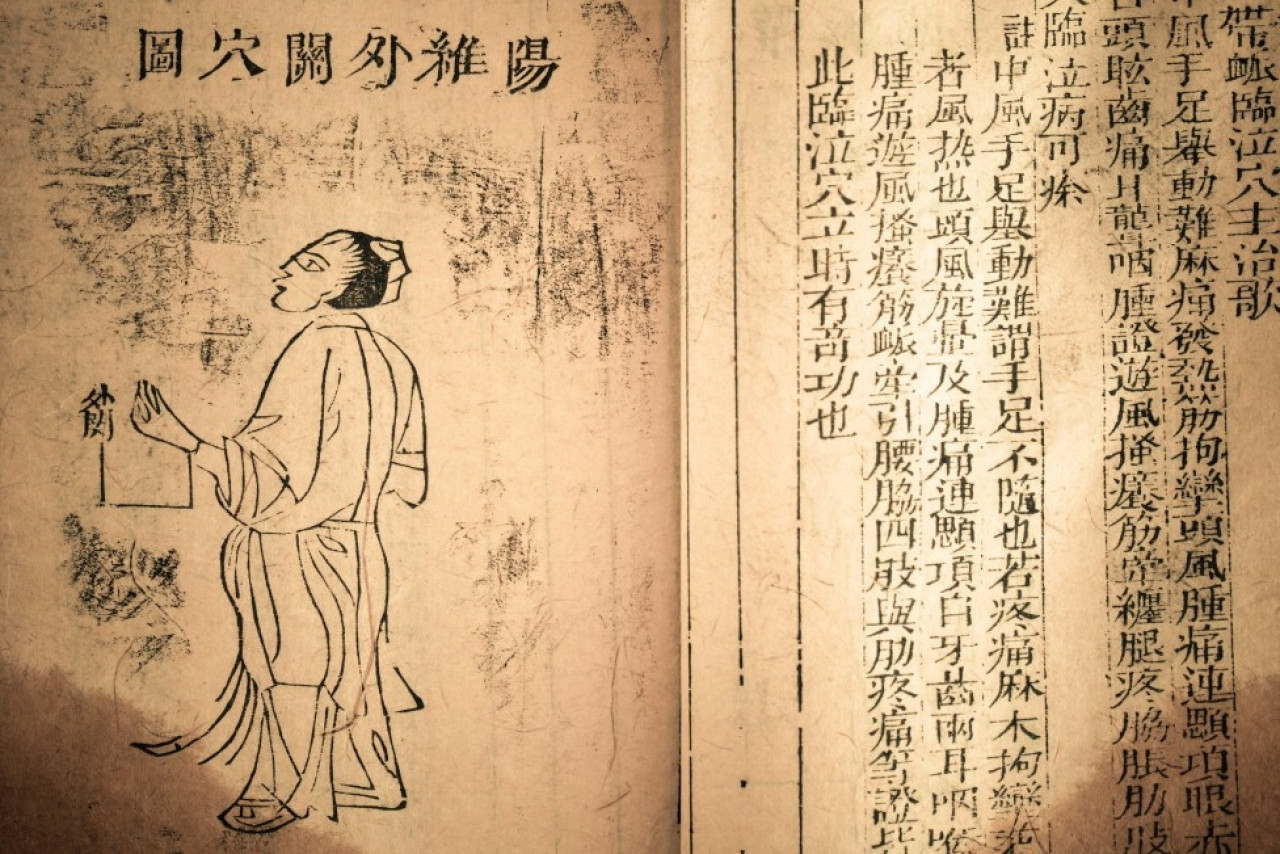 帶衇臨泣穴主治歌
中風手足舉動難麻痛發熱筋拘攣頭風腫痛連顋項眼赤
頭眩齒痛耳聾咽腫證遊風搔癢筋牽纏腿疼脇脹肋肢
臨泣病可痊
註中風手足舉動難謂手足不隨也若疼痛麻木拘攣
者風热也頭風旋暈及腫痛連顋項目牙齒兩耳咽喉
腫痛遊風搔癢筋衇牽引腰脇四肢與肋疼痛等證皆
此臨泣穴立時有奇功也
陽維外關穴圖
外關